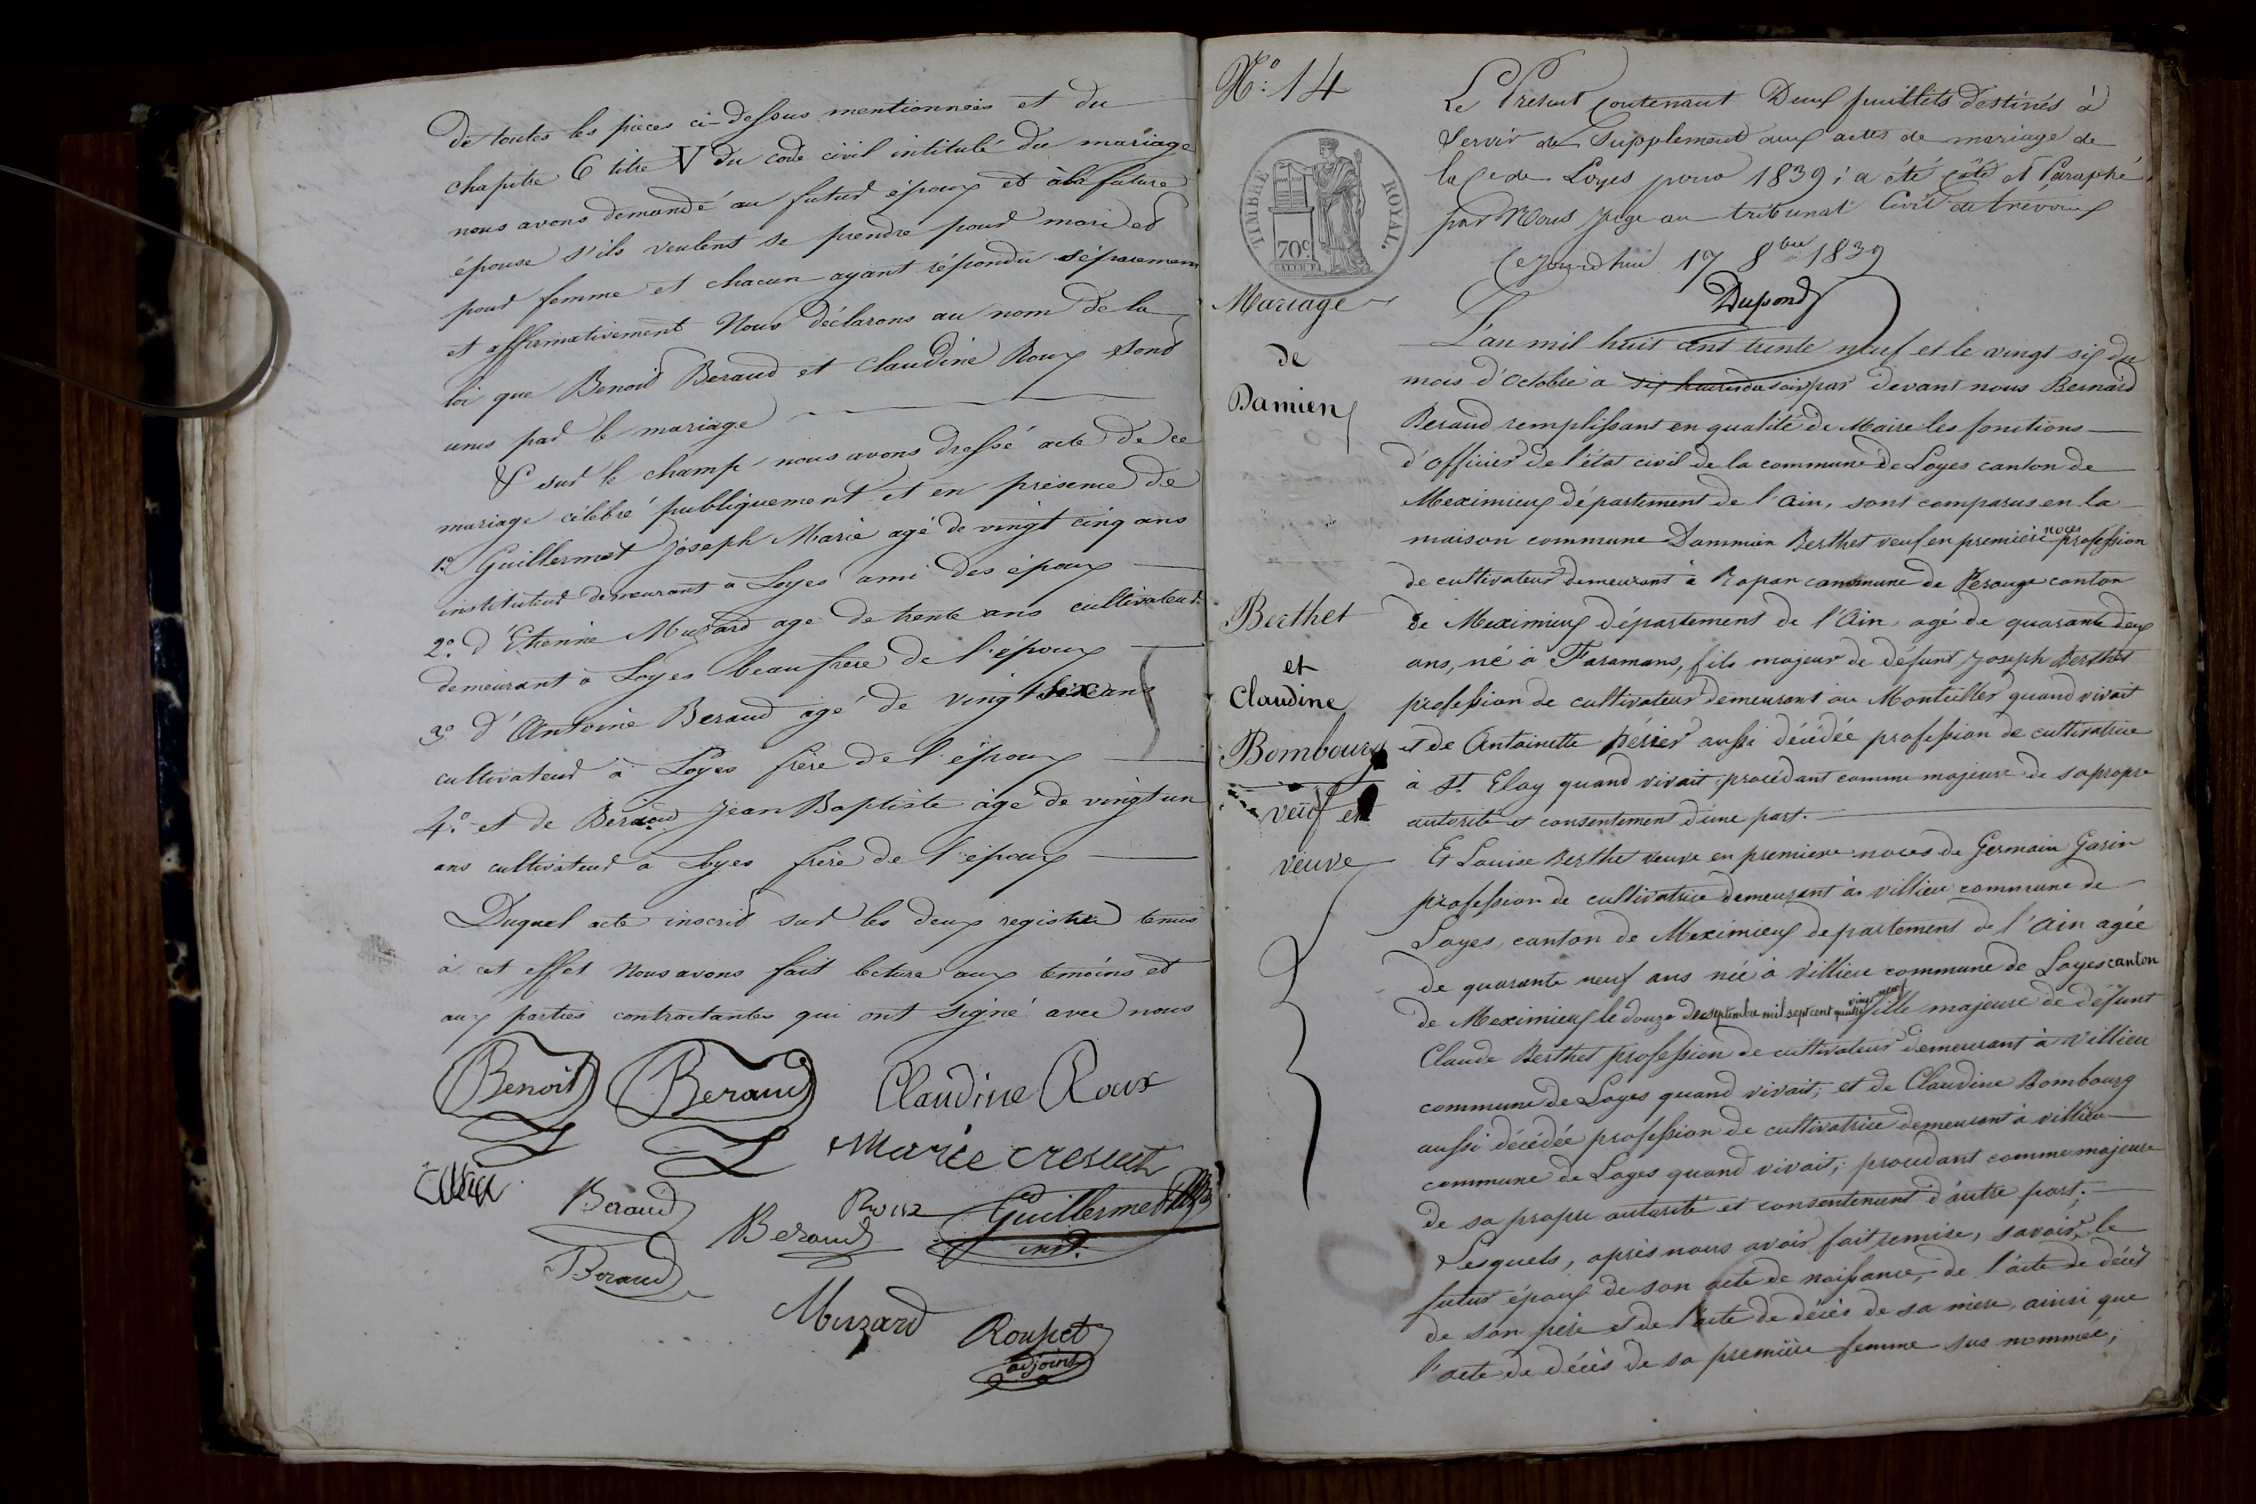 de toutes les pièces ci-dessus mentionnées et du
chapitre 6 titre V du code civil intitulé du mariage
nous avons demandé au futur époux et à la future
épouse s'ils veulent se prendre pour mari et
pour femme et chacun ayant répondu séparement
et affirmativement Nous déclarons au nom de la
loi que Benoit Beraud et Claudine Roux sont
unis par le mariage
& sur le champ nous avons dressé acte de ce
mariage célébré publiquement et en présence de
1º Guillermet Joseph Marie agé de vingt cinq ans
instituteur demeurant à Loyes ami des époux
2º d'Etienne Muzard age de trente ans cultivateur
demeurant à Loyes beaufrère de l'époux
3º d'Antoine Beraud agé de vingt six ans
cultivateur à Loyes frère de l'époux
4º et de Béraud Jean Baptiste âgé de vingt un
ans cultivateur à Loyes frère de l'époux
Duquel acte inscrit sur les deux registre tenus
à cet effet Nous avons fait lecture aux temoins et
aux parties contractantes qui ont signé avec nous
Benoit Beraud Claudine Roux
Marie
Beraud Roux Guillermet
Beraud inst.
Beraud
Muzard Roupet
adjoint
Nº: 14
TIMBRE ROYAL.
70c
Mariage
de
Damien
Berthet
et
Claudine
Bombourg
veuf et
veuve
Le Présent contenant Deux feuillets destinés à
Servir de Supplement aux actes de mariage de
la Cne de Loyes pour 1839; a été côté et Paraphé
par Nous Juge au tribunal Civil de trévoux
Cejourdhui 17 8bre 1839
Dupond
L'an mil huit cent trente neuf et le vingt six du
mois d'Octobre à six heures du soir par devant nous Bernard
Beraud remplissant en qualité de Maire les fonctions
d'officier de l'état civil de la commune de Loyes canton de
Meximieux département de l'Ain, sont comparus en la
maison commune Dammien Berthet veuf en premiere noces profession
de cultivateur demeurant à Rapan commune de Perouge canton
de Meximieux département de l'Ain agé de quarante deux
ans, né à Faramans, fils majeur de défunt Joseph Berthet
profession de cultivateur demeurant au Montellier quand vivait
et de Antoinette périer aussi décédée profession de cultivatrice
à St. Eloy quand vivait; procédant comme majeure de sa propre
autorité et consentement d'une part.
Et Louise Berthet veuve en premiere noces de Germain Garin
profession de cultivatrice demeurant à villieu commune de
Loyes, canton de Meximieux departement de l'Ain agée
de quarante neuf ans née à Villieu commune de Loyes canton
de Meximieux le douze de septembre mil sept cent quatre vingt neuf fille majeure de défunt
Claude Berthet profession de cultivateur demeurant à Villieu
commune de Loyes quand vivait; et de Claudine Bombourg
aussi décédée profession de cultivatrice demeurant à villieu
commune de Loyes quand vivait; procedant comme majeure
de sa propre autorité et consentement d'autre part;
Lesquels, après nous avoir fait remise, savoir, le
futur époux de son acte de naissance, de l'acte de décès
de son père et de l'acte de décès de sa mère, ainsi que
l'acte de décès de sa première femme sus nommée;